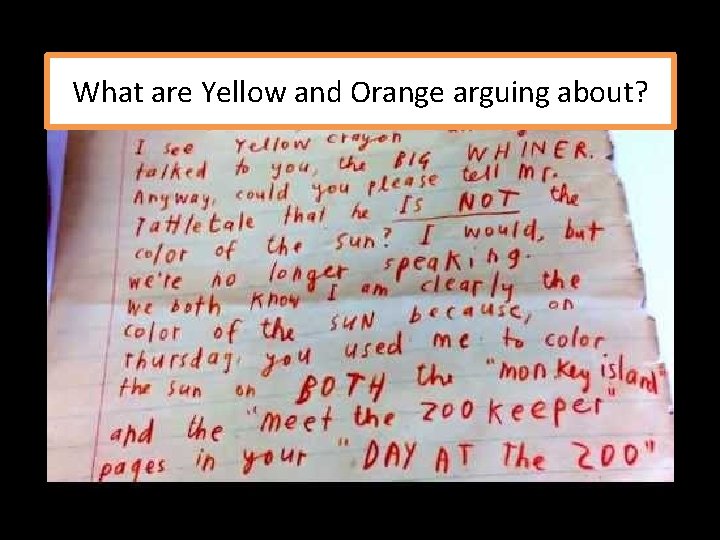 What are Yellow and Orange arguing about?
I see Yellow crayon
talked to you, the BIG WHINER.
Anyway, could you please tell Mr.
Tattletale that he Is NOT the
color of the sun? I would, but
we're no longer speaking.
We both know I am clearly the
color of the SUN because, on
thursday, you used me to color
the sun on BOTH the "monkey island"
and the "meet the zookeeper"
pages in your "DAY AT The ZOO"